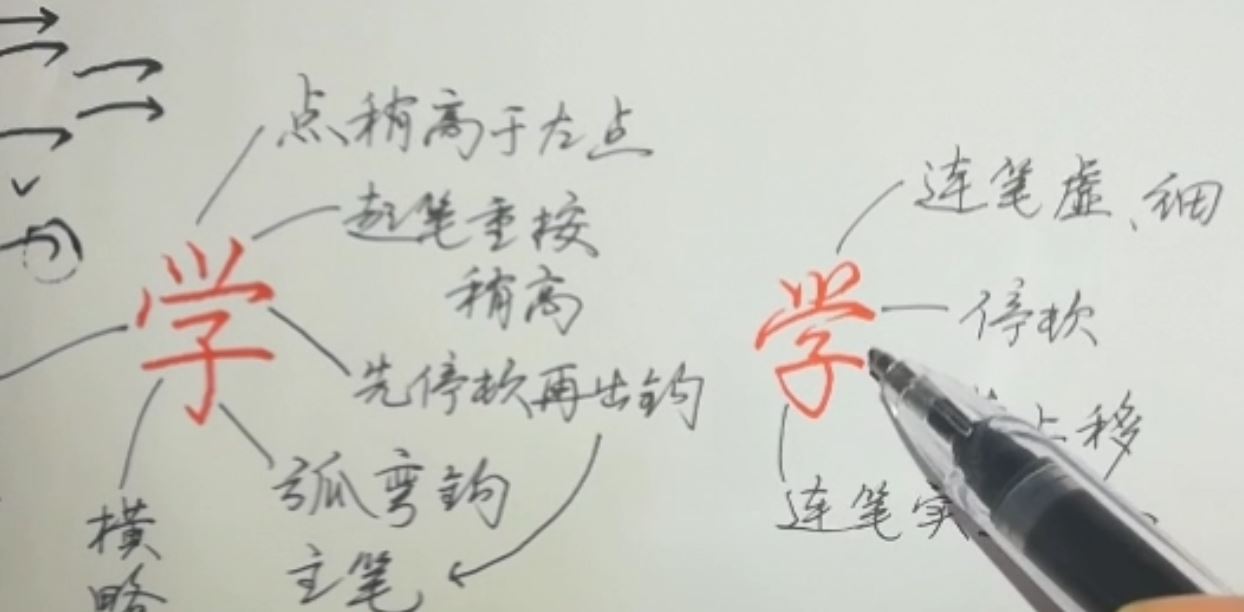 点稍高于左点
起笔重按
稍高
学
先停顿再出钩
弧弯钩
主笔
横
略
连笔虚、细
学
停顿
上移
连笔实